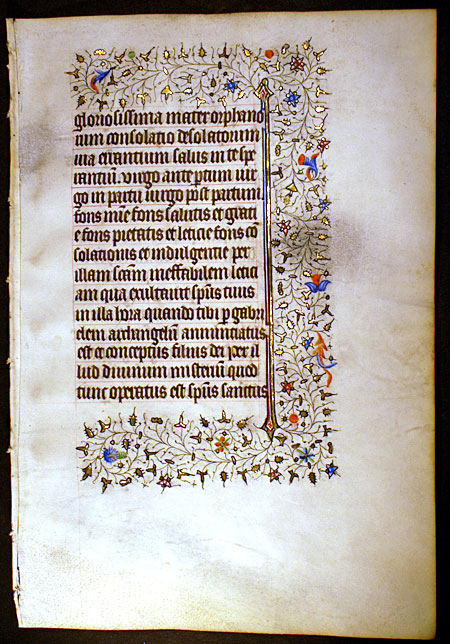 gloriosissima mater orphano
rum consolatio desolatorum
uia errantium salus in te spe
rantium uirgo ante ptum uir
go in partu uirgo post partum
fons mie fons salutis et grati
e fons pietatis et leticie fons cō
solationis et indulgentie per
illam scām ineffabilem letici
am qua exultauit spūs tuus
in illa hora quando tibi p gabri
elem archangelū annunciatus
est et conceptus filius dei per il
lud diuinum misteriū quod
tunc operatus est spūs sanctus